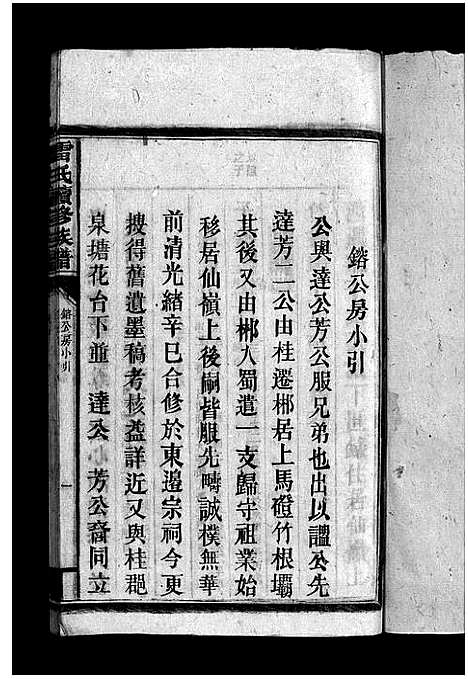 鎔公房小引
公與達公芳公服兄弟也出以諷公先
達芳二公由桂遷郴居上馬磴竹根壩
其後又由郴入蜀遣一支歸守祖業始
移居仙嶺上後嗣皆服先疇誠樸無華
前清光緒辛巳合修於東邊宗祠今更
搜得舊遺墨稿考核益詳近又與桂邑
泉塘花台下並達公芳公裔同立
雷氏續修族譜
鎔公房小引
一